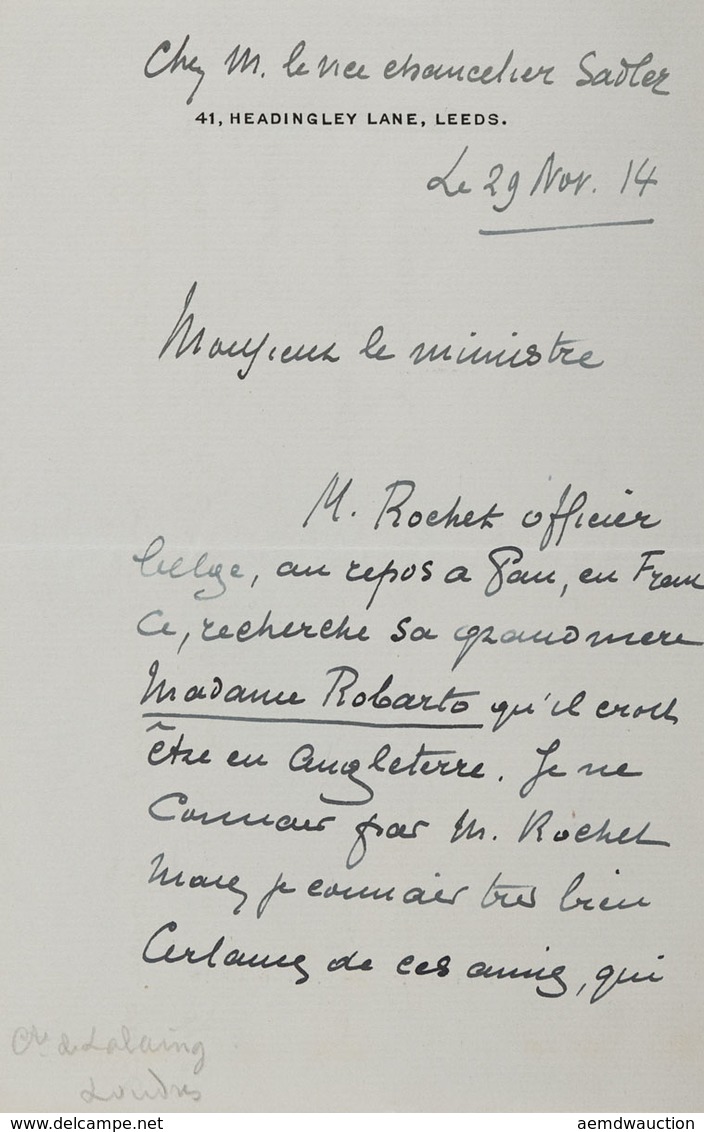 Chez M. le vice chancelier Sadler
41, HEADINGLEY LANE, LEEDS.
Le 29 Nov. 14
Monsieur le ministre
M. Rochet officier
belge, au repos a Pau, en Fran
ce, recherche sa grand mere
Madame Robarto qu'il croit
être en Angleterre. Je ne
Connais pas M. Rochet
Mais je connais tres bien
Certains de ces amis, qui
Cte de Lalaing
Londres
www.delcampe.net
aemdwauction